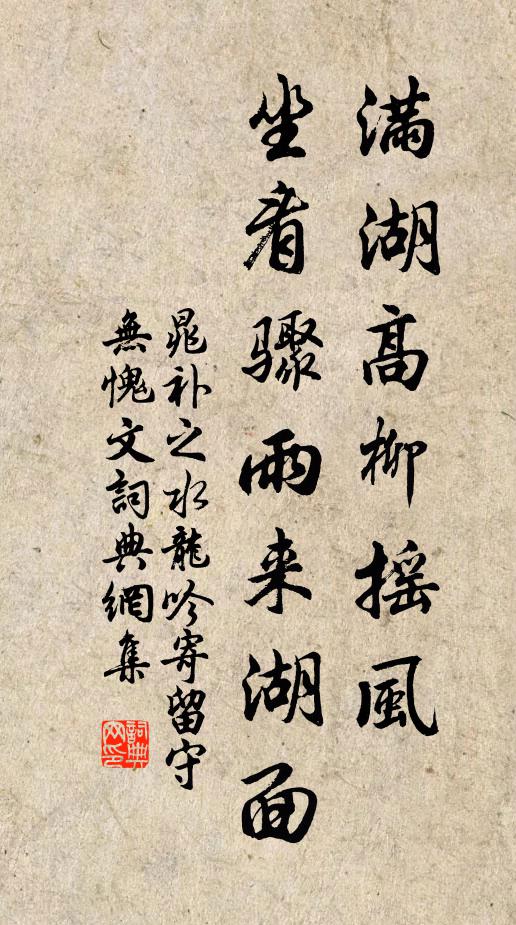 滿湖高柳搖風
坐看驟雨来湖面
晁补之水龍吟寄留守
無愧文詞典網集
詞典网印